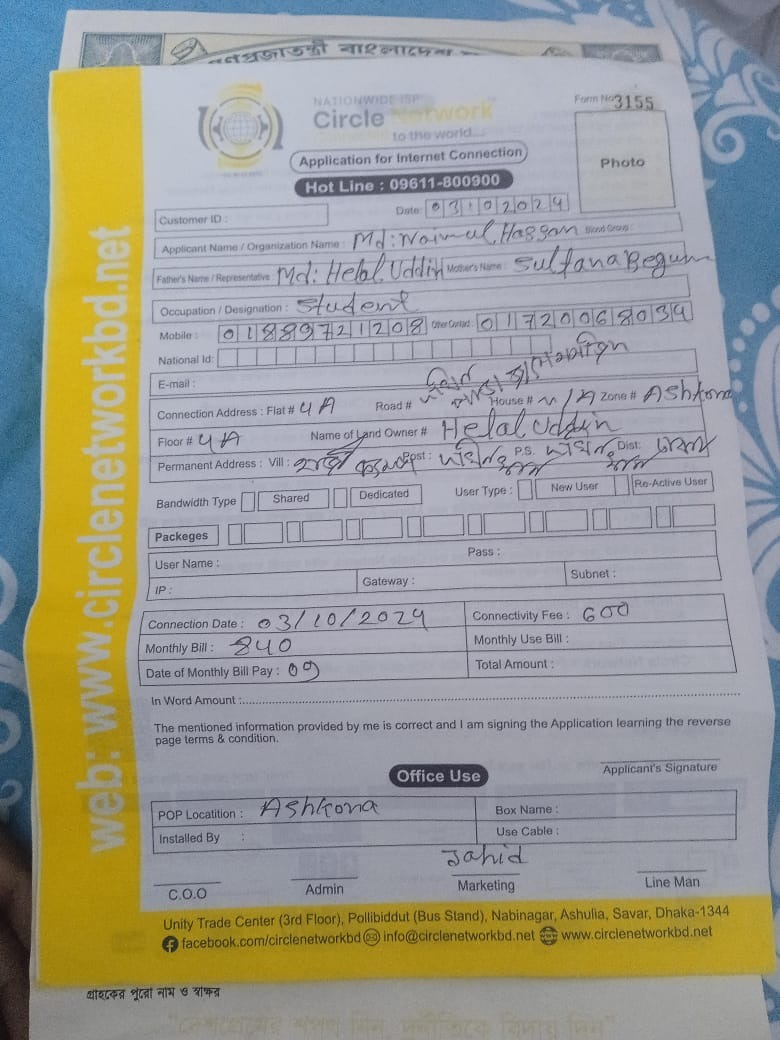 গণপ্রজাতন্ত্রী বাংলাদেশ
NATIONWIDE ISP
Circle Network
Connected to the world...
Form No 3155
Application for Internet Connection
Photo
Hot Line : 09611-800900
Date: 03102024
Customer ID :
Applicant Name / Organization Name : Md: Naimul Hassan Blood Group :
Father's Name / Representative : Md: Helal Uddin Mother's Name : Sultana Begum
Occupation / Designation : Student
Mobile : 01889721208 Other Contact : 01720068034
National Id:
E-mail :
Connection Address : Flat # 4A Road # House # Zone # Ashkona
Floor # 4A Name of Land Owner # Helal Uddin
Permanent Address : Vill : Post : P.S. Dist:
Bandwidth Type Shared Dedicated User Type : New User Re-Active User
Packeges
User Name : Pass :
IP : Gateway : Subnet :
Connection Date : 03/10/2024 Connectivity Fee : 600
Monthly Bill : 840 Monthly Use Bill :
Date of Monthly Bill Pay : 09 Total Amount :
In Word Amount :
The mentioned information provided by me is correct and I am signing the Application learning the reverse
page terms & condition.
Applicant's Signature
Office Use
POP Locatition : Ashkona Box Name :
Installed By : Use Cable :
Jahid
C.O.O Admin Marketing Line Man
Unity Trade Center (3rd Floor), Pollibiddut (Bus Stand), Nabinagar, Ashulia, Savar, Dhaka-1344
facebook.com/circlenetworkbd info@circlenetworkbd.net www.circlenetworkbd.net
web: www.circlenetworkbd.net
গ্রাহকের পুরো নাম ও স্বাক্ষর
"দেশপ্রেমের শপথ নিন, দুর্নীতিকে বিদায় দিন"